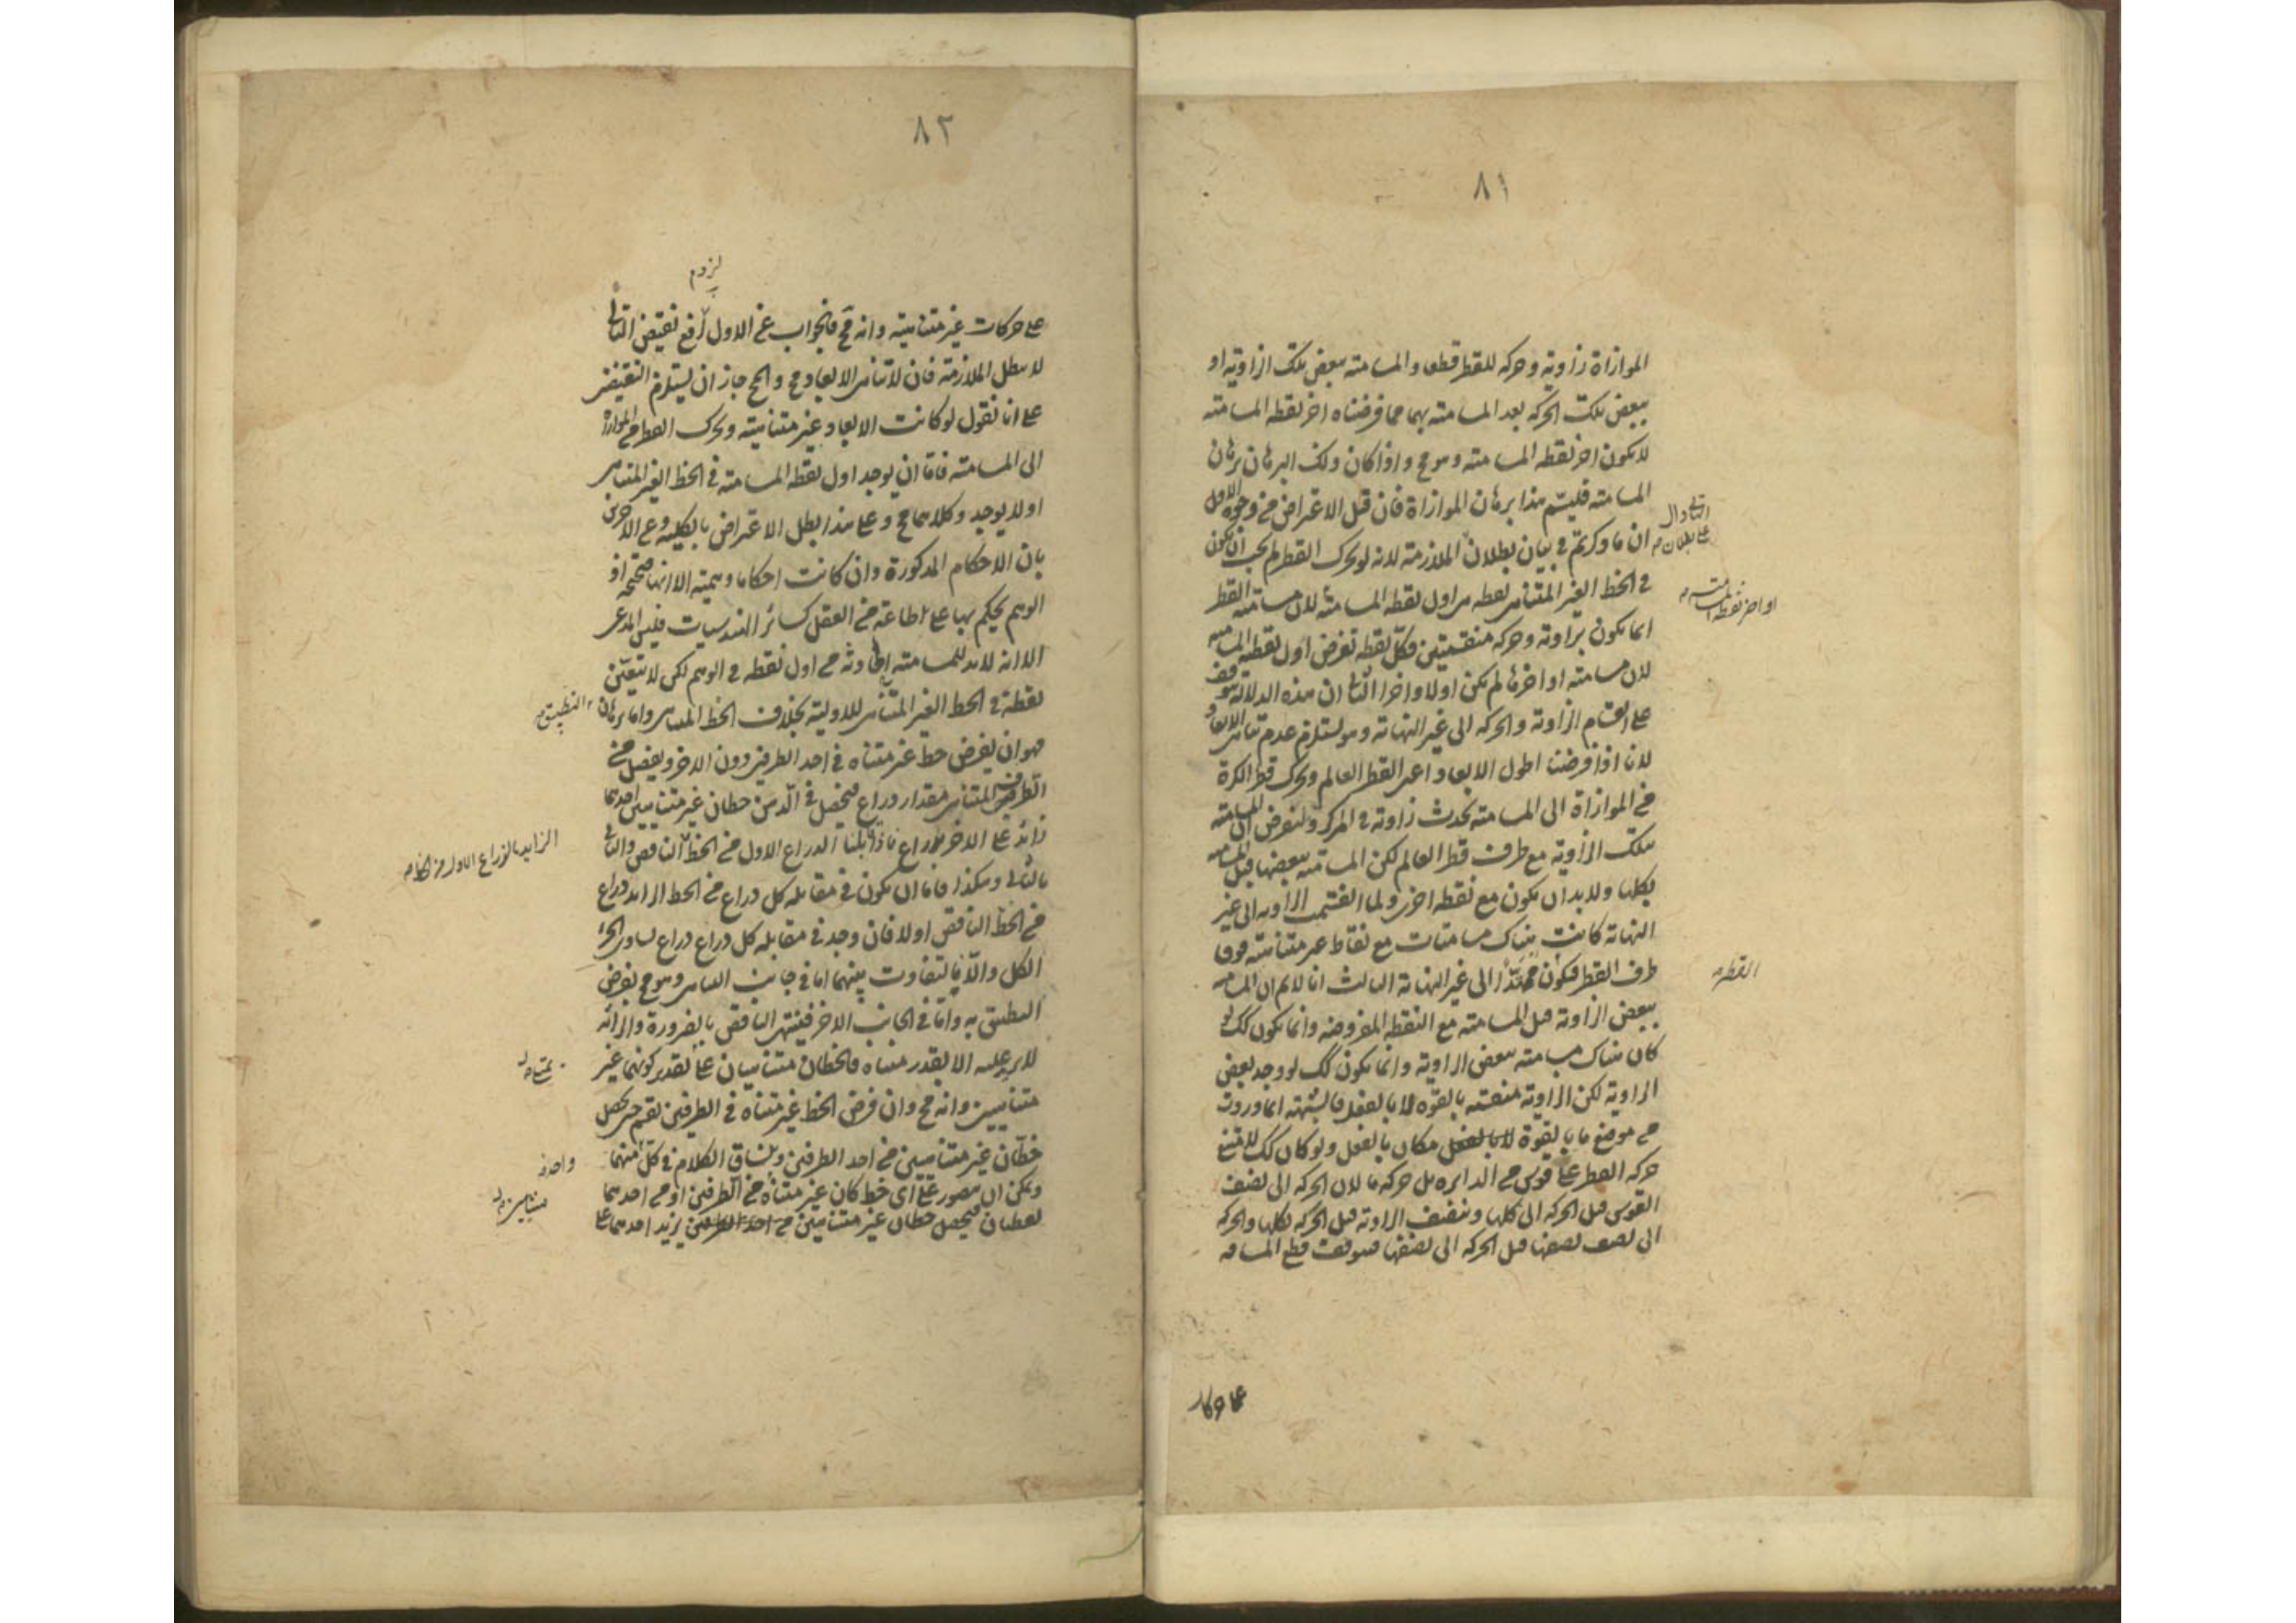 ٨١
الموازاة زاوية وحركه للقطر قطعا والمسامته ببعض تلك الزاوية او
ببعض تلك الحركه بعد المسامته بهما فما فرضناه اخر نقطه المسامته
لا يكون اخر نقطه المسامته وهو مح واذا كان ذلك البرهان برهان
المسامته فليسم هذا برهان الموازاة فان قيل الاعتراض من وجوه الاول
ان ما ذكرتم في بيان بطلان الملازمة لانه لو تحرك القطر لم يجب ان يكون
في الخط الغير المتناهى نقطه هى اول نقطه المسامته لان مسامته القطر
انما يكون بزاوية وحركه منقسمتين فكل نقطه تفرض اول نقطه المسامته
لان مسامته او اخرها لم يكن اولا واخرا الثانى ان هذه الدلاله موقوف
على انقسام الزاوية والحركه الى غير النهاية وهو يستلزم عدم تناهى الابعاد
لانا اذا فرضنا اطول الابعاد اعنى القطر العالم وتحرك قطر الكرة
من الموازاة الى المسامته تحدث زاوية في المركز ولنفرض ان المسامته
بتلك الزاوية مع طرف قطر العالم لكن المسامته ببعضها قبل المسامته
بكلها ولا بد ان يكون مع نقطه اخرى ولما انقسمت الزاويه الى غير
النهاية كانت هناك مسامتات مع نقاط غير متناهيه فوق
طرف القطر فيكون ممتدا الى غير النهاية الثالث انا لا نم ان المسامته
ببعض الزاوية قبل المسامته مع النقطه المفروضه وانما يكون كك لو
كان هناك مسامته ببعض الزاوية وانما يكون كك لو وجد بعض
الزاوية لكن الزاوية منقسمه بالقوه لا بالفعل فالشبهة انما وردت
من موضع ما بالقوة لا بالفعل مكان ما بالفعل ولو كان كك لامتنع
حركه القطر على قوس من الدايره بل حركه ما لان الحركه الى نصف
القوس قبل الحركه الى كلها ونصف الزاوية قبل الحركه لكلها والحركه
الى نصف نصفها قبل الحركه الى نصفها فيتوقف قطع المسافه
التالى دال
على بطلان
او اخر نقطه المسامته
القطر
٨٢
لزوم
على حركات غير متناهيه وانه مح فالجواب عن الاول رفع نقيض التالى
لا يبطل الملازمة فان لا تناهى الابعاد مح والمح جاز ان يستلزم النقيضين
على انا نقول لو كانت الابعاد غير متناهيه وتحرك القطر من الموازاة
الى المسامته فاما ان يوجد اول نقطه المسامته في الخط الغير المتناهى
او لا يوجد وكلاهما مح وعلى هذا بطل الاعتراض بالكليه وعن الاخرين
بان الاحكام المذكورة وان كانت احكاما وهمية الا انها صحيحه اذ
الوهم يحكم بها على اطاعة من العقل كسائر الهندسيات فليس المدعى
الا انه لا بد للمسامته الحادثه من اول نقطه في الوهم لكن لا يتعين
نقطة في الخط الغير المتناهى للاولية بخلاف الخط المتناهى واما برهان
فهو ان يفرض خط غير متناه في احد الطرفين دون الاخر ويفصل من
الطرف المتناهى مقدار ذراع فيحصل في الذهن خطان غير متناهيين احدهما
زائد على الاخر بذراع فاذا قابلنا الذراع الاول من الخط الناقص والثانى
بالثانى وهكذا فاما ان يكون في مقابله كل ذراع من الخط الزايد ذراع
من الخط الناقص او لا فان وجد في مقابله كل ذراع ذراع تساوى الجزء
الكل والا فالتفاوت بينهما اما في جانب التناهى وهو مح بفرض
التطبيق به واما في الجانب الاخر فينتهى الناقص بالضرورة والزائد
لا يزيد عليه الا بقدر متناه فالخطان متناهيان على تقدير كونهما غير
متناهيين وانه مح وان فرض الخط غير متناه في الطرفين نقسم حتى يحصل
خطان غير متناهيين من احد الطرفين ويساق الكلام في كل منهما
ويمكن ان يتصور على اى خط كان غير متناه من الطرفين او من احدهما
نقطتان فيحصل خطان غير متناهيين من احد الطرفين يزيد احدهما على
التطبيق
الزايد بالذراع الاول من
متناه
واحد
على حركات